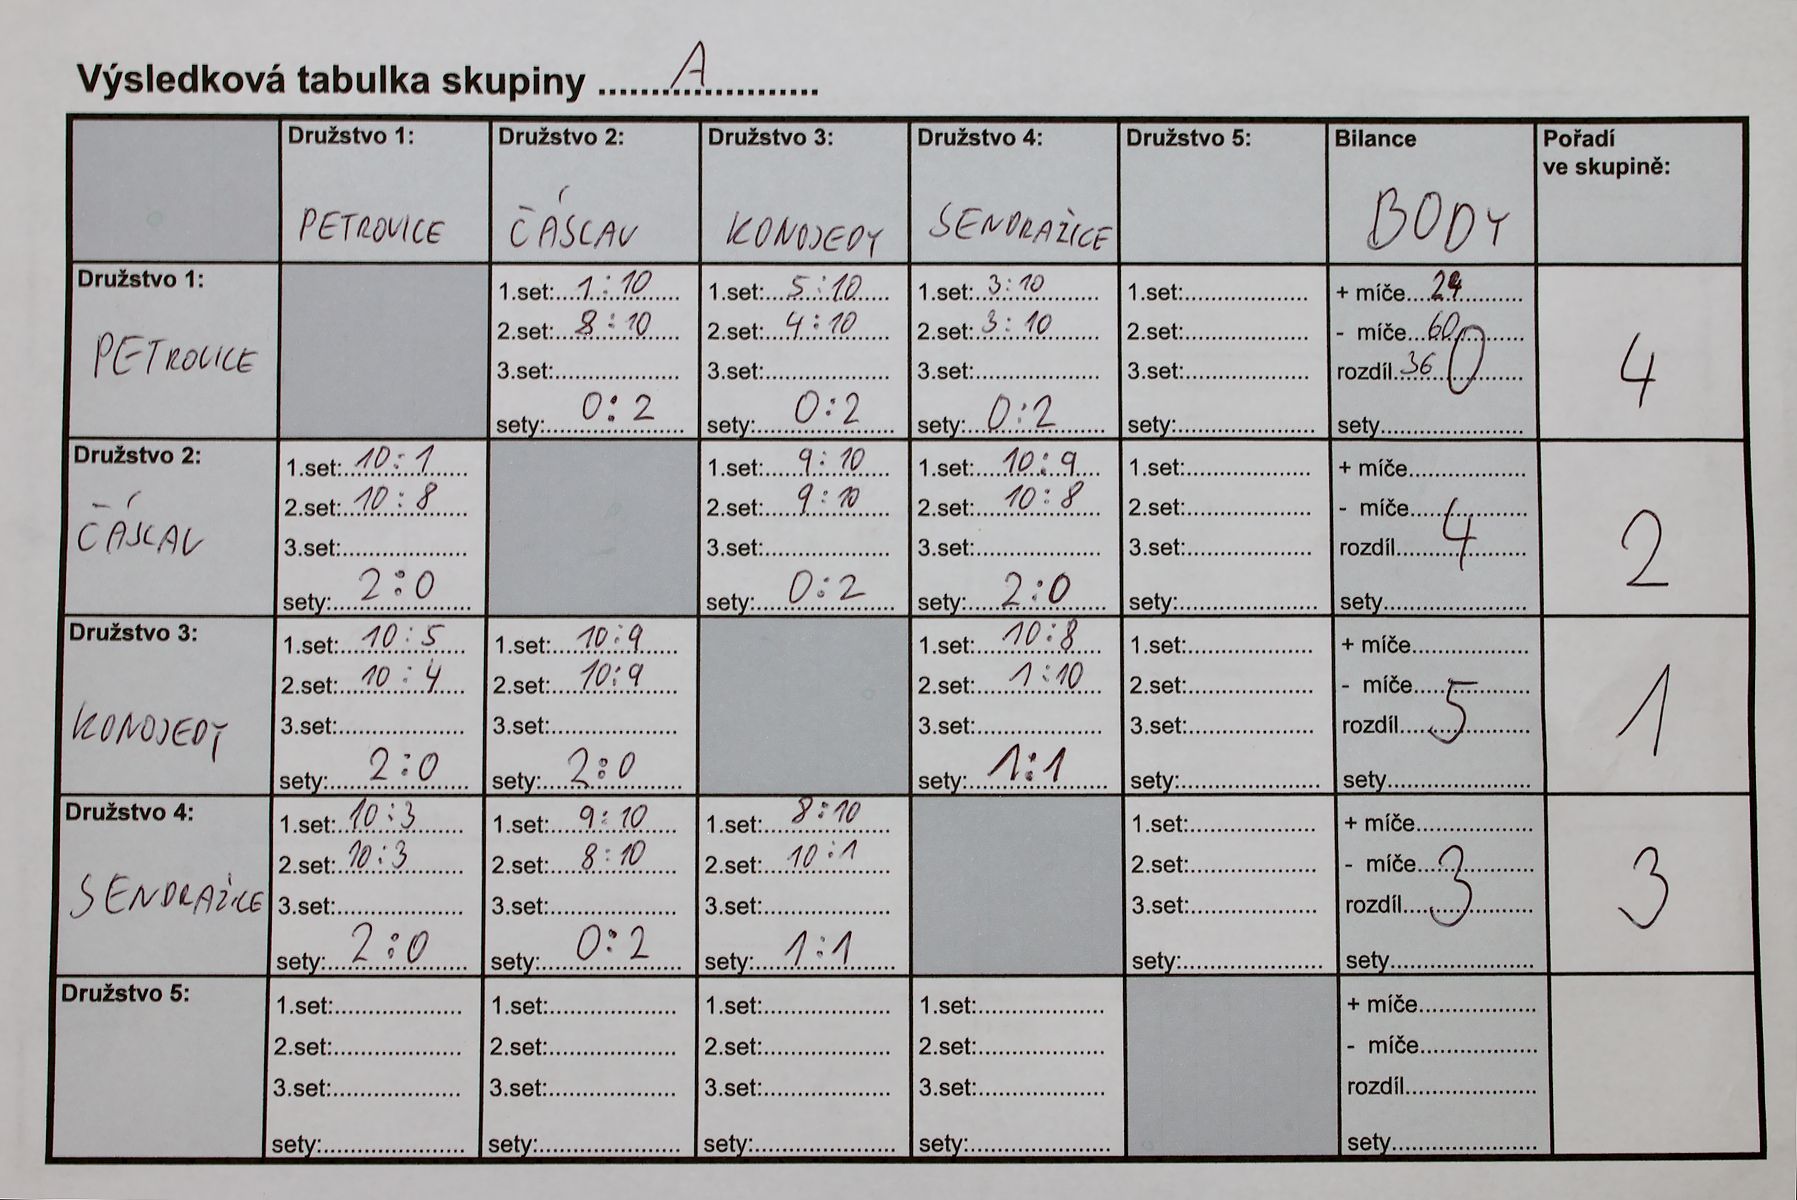 Výsledková tabulka skupiny ......A......
Družstvo 1: Družstvo 2: Družstvo 3: Družstvo 4: Družstvo 5: Bilance Pořadí
ve skupině:
PETROVICE ČÁSLAV KONOJEDY SENDRAŽICE BODY
Družstvo 1:
PETROVICE
1.set: 1:10 1.set: 5:10 1.set: 3:10 1.set: + míče 24
2.set: 8:10 2.set: 4:10 2.set: 3:10 2.set: - míče 60
3.set: 3.set: 3.set: 3.set: rozdíl 36 0 4
sety: 0:2 sety: 0:2 sety: 0:2 sety: sety
Družstvo 2:
ČÁSLAV
1.set: 10:1 1.set: 9:10 1.set: 10:9 1.set: + míče
2.set: 10:8 2.set: 9:10 2.set: 10:8 2.set: - míče
3.set: 3.set: 3.set: 3.set: rozdíl 4 2
sety: 2:0 sety: 0:2 sety: 2:0 sety: sety
Družstvo 3:
KONOJEDY
1.set: 10:5 1.set: 10:9 1.set: 10:8 1.set: + míče
2.set: 10:4 2.set: 10:9 2.set: 1:10 2.set: - míče
3.set: 3.set: 3.set: 3.set: rozdíl 5 1
sety: 2:0 sety: 2:0 sety: 1:1 sety: sety
Družstvo 4:
SENDRAŽICE
1.set: 10:3 1.set: 9:10 1.set: 8:10 1.set: + míče
2.set: 10:3 2.set: 8:10 2.set: 10:1 2.set: - míče
3.set: 3.set: 3.set: 3.set: rozdíl 3 3
sety: 2:0 sety: 0:2 sety: 1:1 sety: sety
Družstvo 5:
1.set: 1.set: 1.set: 1.set: + míče
2.set: 2.set: 2.set: 2.set: - míče
3.set: 3.set: 3.set: 3.set: rozdíl
sety: sety: sety: sety: sety